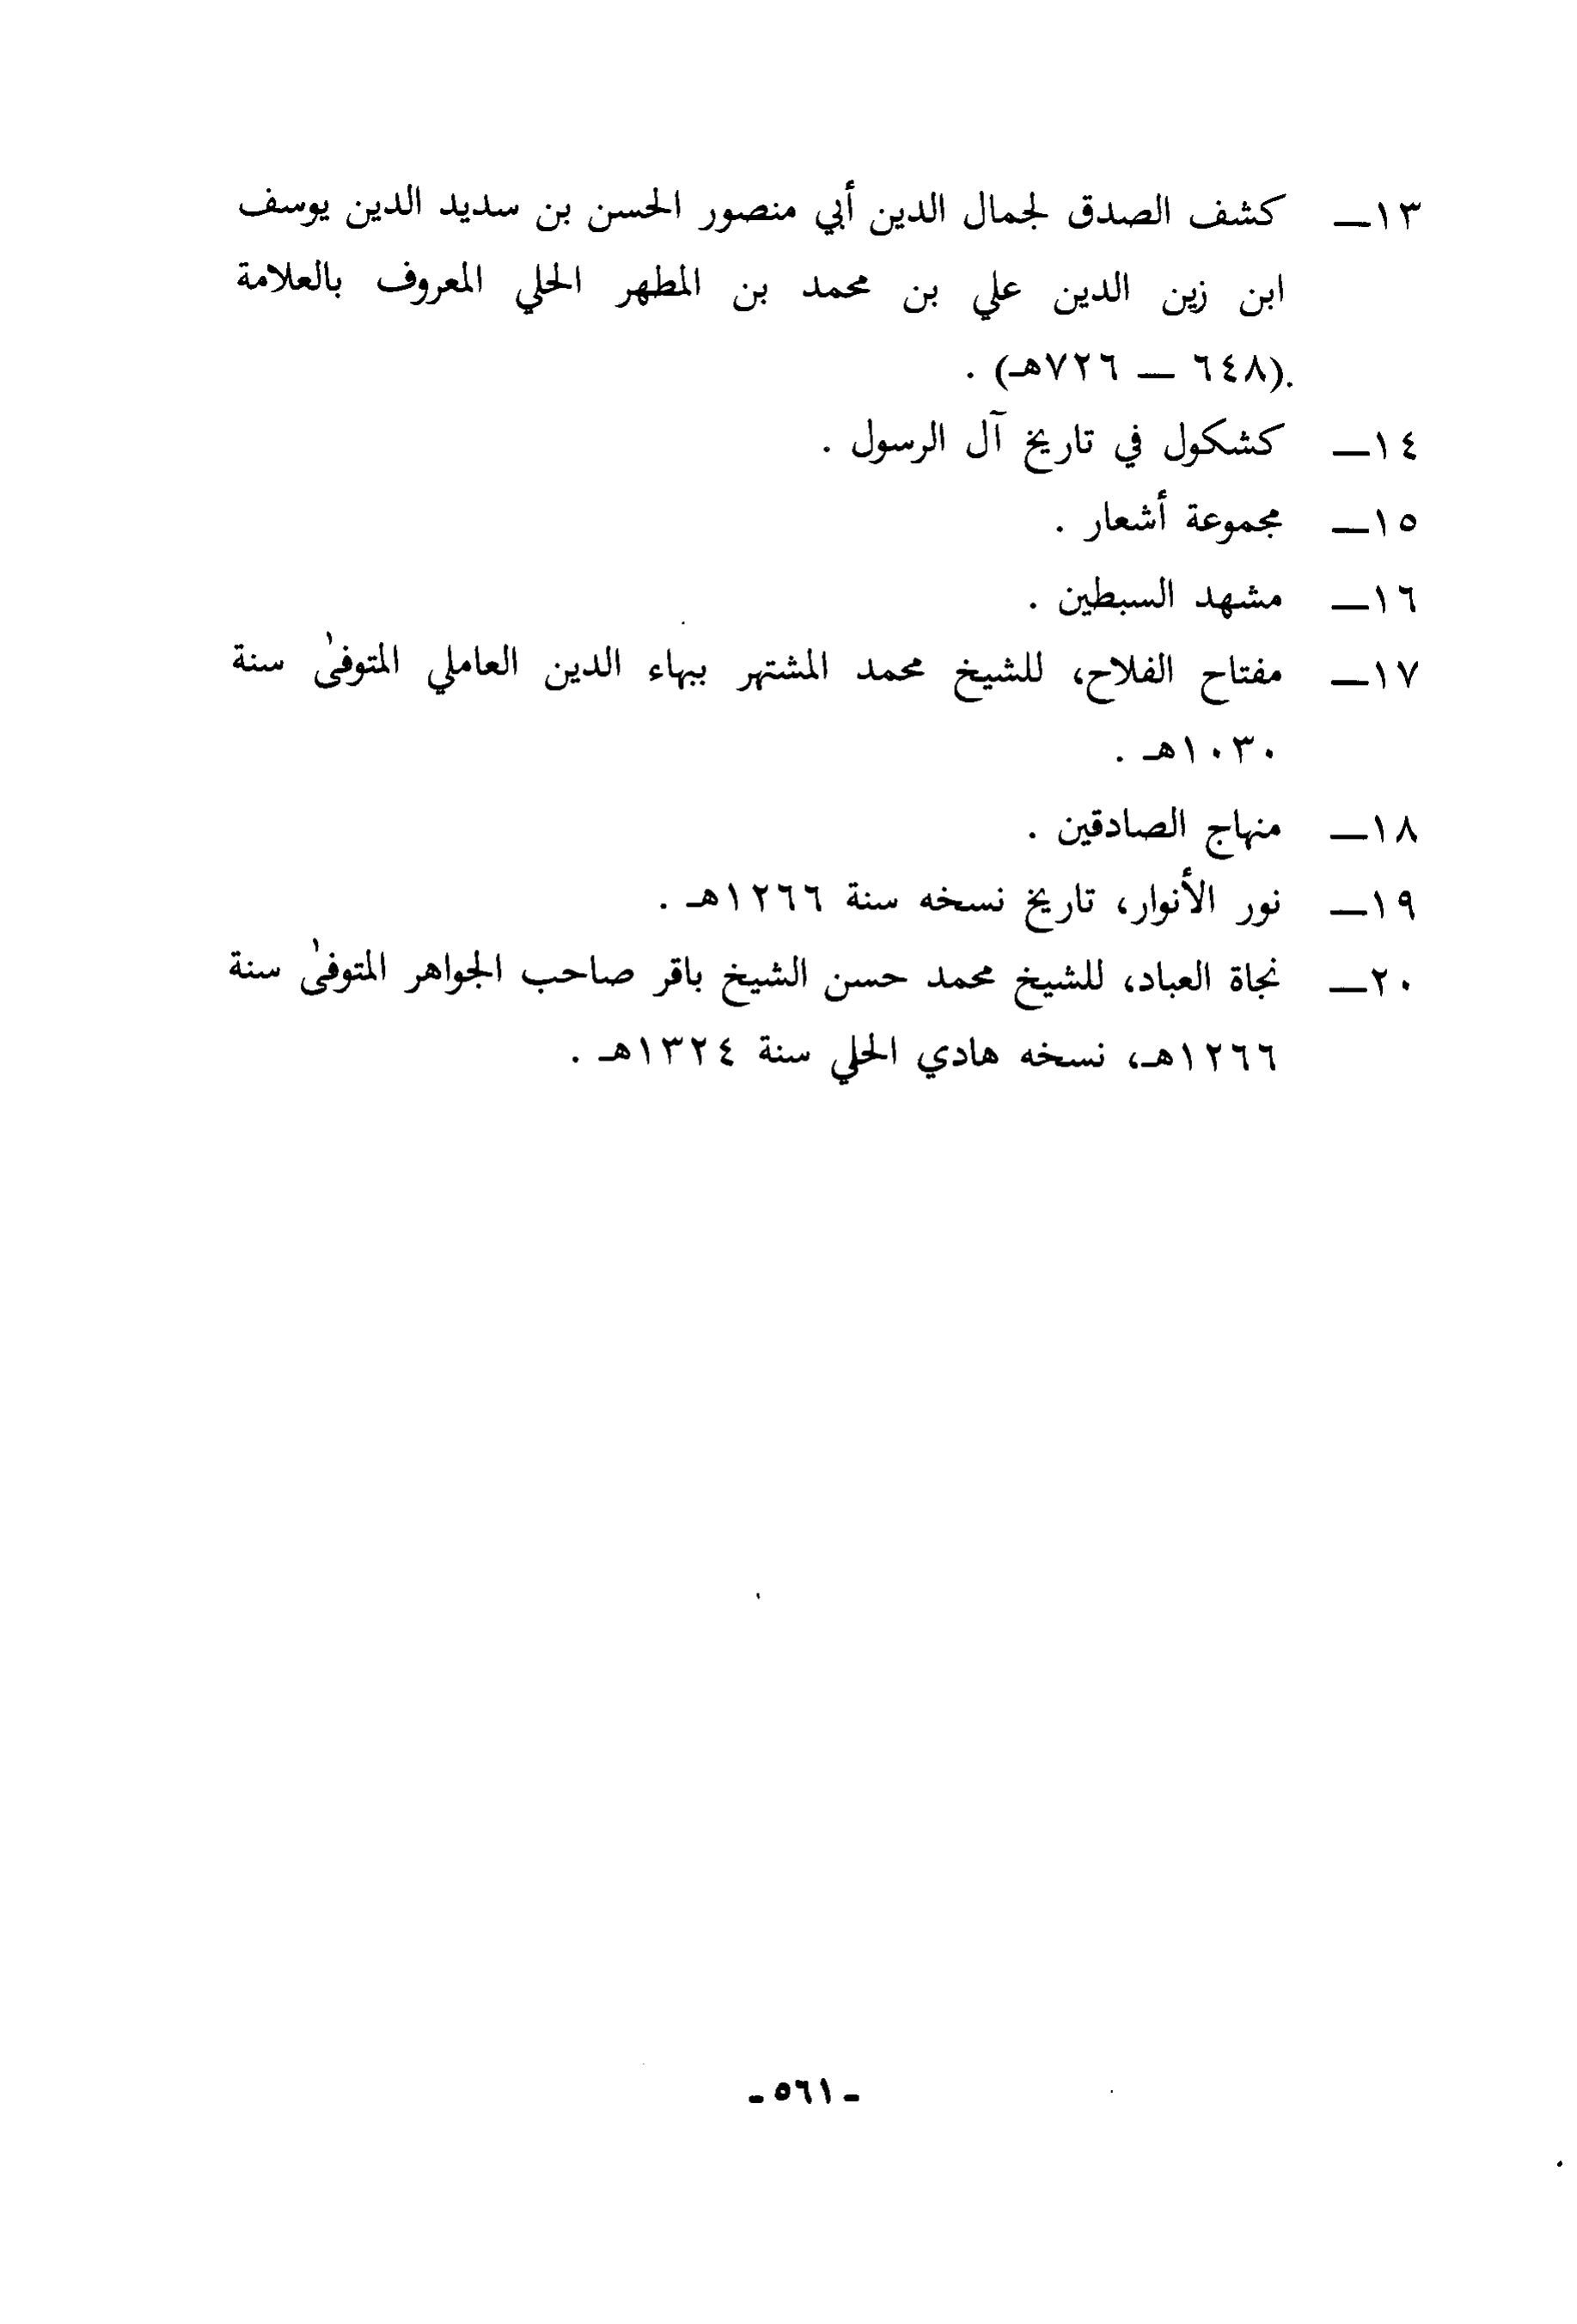 ١٣— كشف الصدق لجمال الدين أبي منصور الحسن بن سديد الدين يوسف
ابن زين الدين علي بن محمد بن المطهر الحلي المعروف بالعلامة
.(٦٤٨ — ٧٢٦هـ) .
١٤— كشكول في تاريخ آل الرسول .
١٥— مجموعة أشعار .
١٦— مشهد السبطين .
١٧— مفتاح الفلاح، للشيخ محمد المشتهر ببهاء الدين العاملي المتوفىٰ سنة
١٠٣٠هـ .
١٨— منهاج الصادقين .
١٩— نور الأنوار، تاريخ نسخه سنة ١٢٦٦هـ .
٢٠— نجاة العباد، للشيخ محمد حسن الشيخ باقر صاحب الجواهر المتوفىٰ سنة
١٢٦٦هـ، نسخه هادي الحلي سنة ١٣٢٤هـ .
- ٥٦١ -